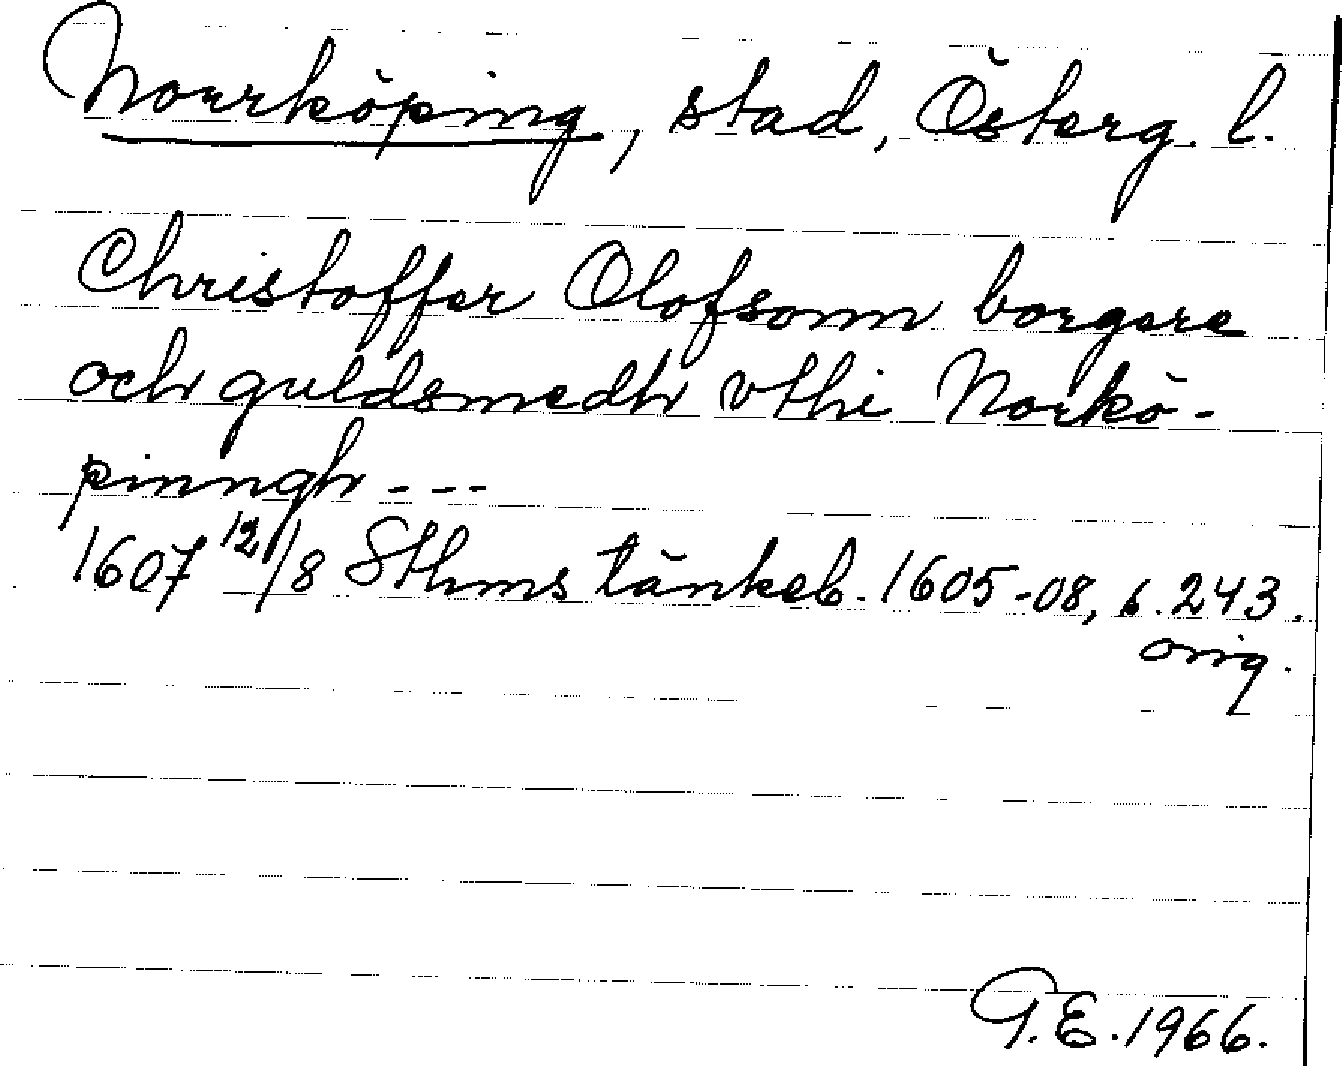 Norrköping, stad, Österg. l.
Christoffer Olofsonn borgere
och guldsmedh vthi Norkö-
pinngh - - -
1607 12/8 Sthms tänkeb. 1605-08, s. 243.
orig.
G.E. 1966.